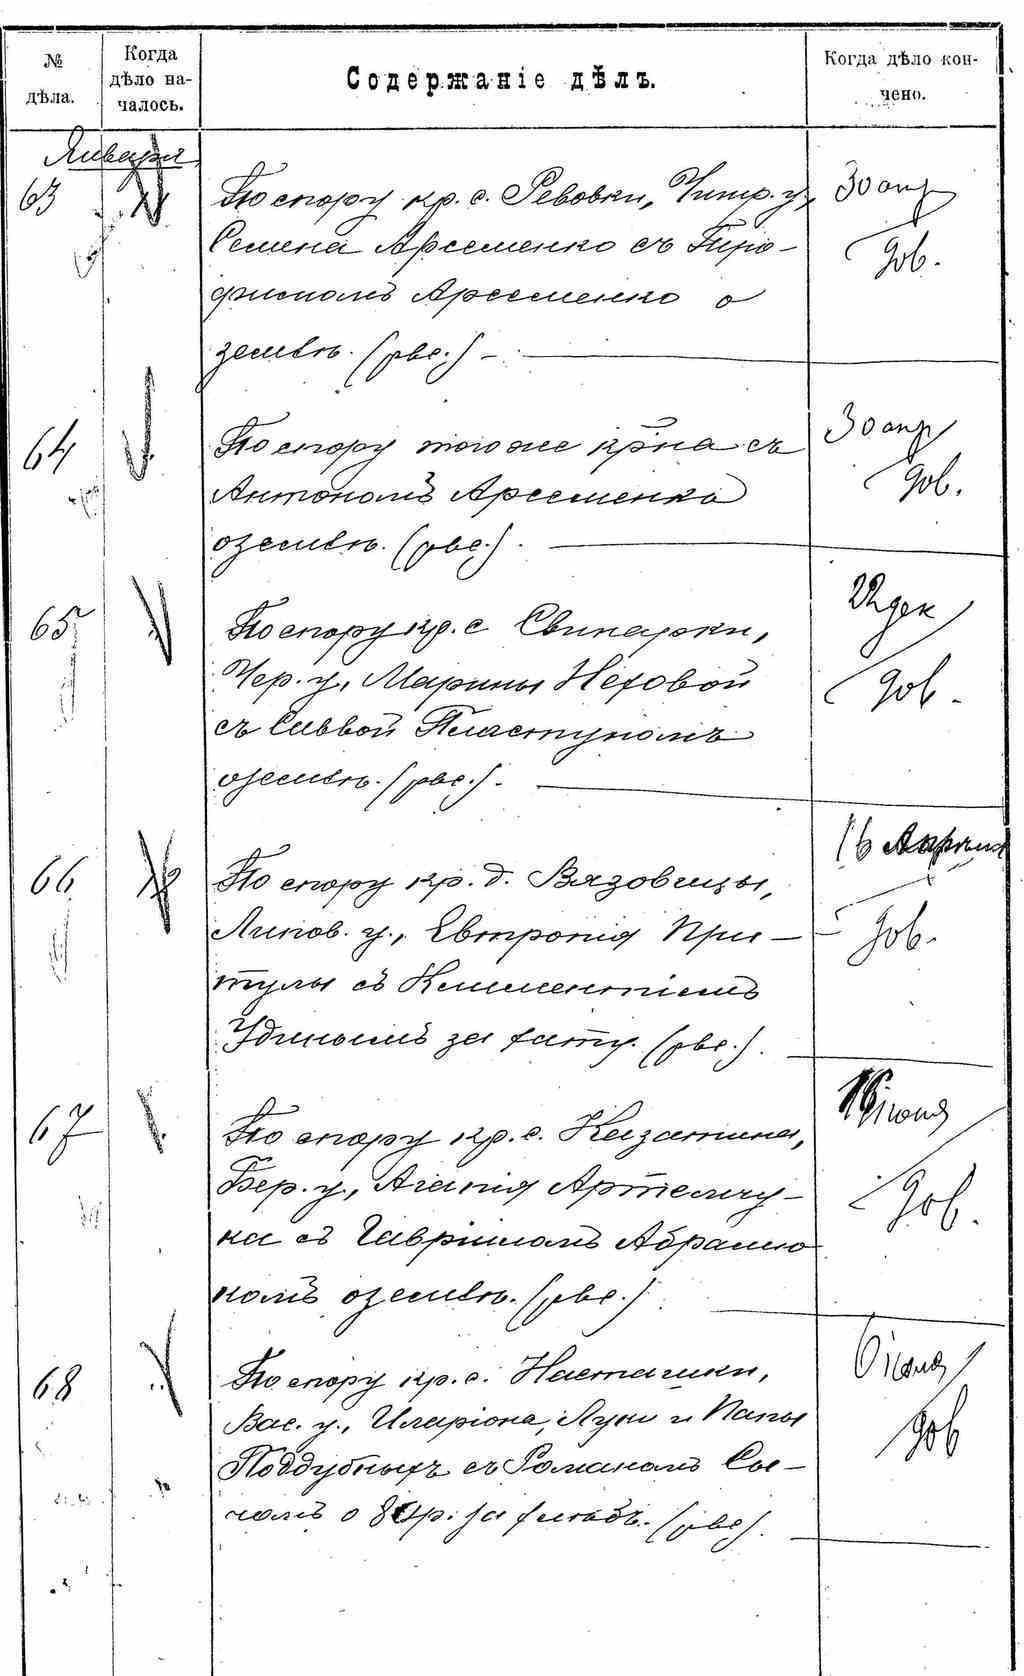 № дѣла.
Когда дѣло началось.
Содержаніе дѣлъ.
Когда дѣло кончено.
Января
63
По спору кр. с. Ревовки, Чигир. у.
Семена Арсеменко съ
Арсеменко о
землѣ.
30 апр
64
По спору того же кр-на съ
Антономъ Арсеменко
о землѣ.
30 апр
65
По спору кр. с. Свинарки,
Чер. у., Марины Неховой
съ Саввой Пластуномъ
о землѣ.
22 дек
66
По спору кр. д. Вязовицы,
Липов. у., Евтропія При-
тулы съ Климентіемъ
за хату.
16 Апрѣля
67
По спору кр. с. Казатина,
Бер. у., Агапія Артемчу-
ка съ Гавріиломъ Абрамю
комъ о землѣ.
16 іюня
68
По спору кр. с. Насташки,
Вас. у., Иларіона, Луки и
Поддубныхъ съ Романомъ Сы-
чомъ о 80 р. за хлѣбъ.
6 іюня